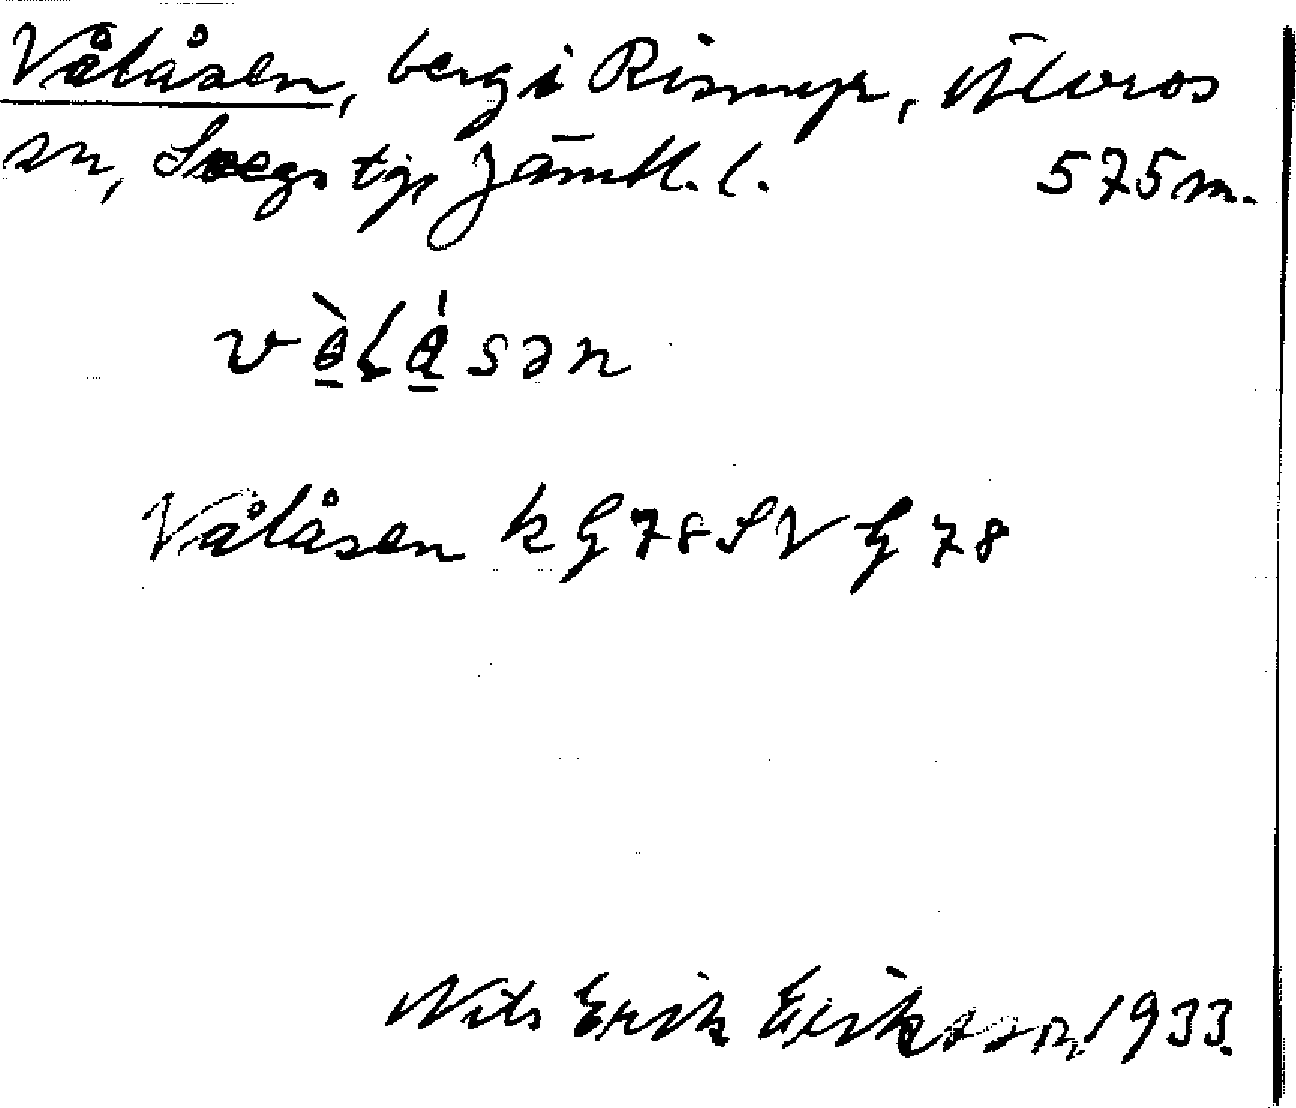 Vålåsen, berg i Rismyr, Älvros
sn, Svegs tg, Jämtl. l. 575 m.
vø̱̀lá̱sən
Vålåsen k G 78 SV G 78
Nils Erik Eriksson, 1933.